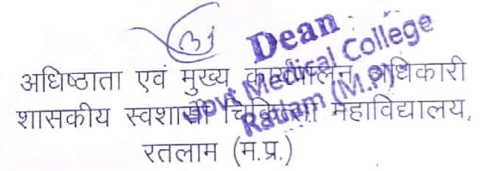 Dean
Govt Medical College
Ratlam (M.P.)
अधिष्ठाता एवं मुख्य कार्यपालन अधिकारी
शासकीय स्वशासी चिकित्सा महाविद्यालय,
रतलाम (म.प्र.)